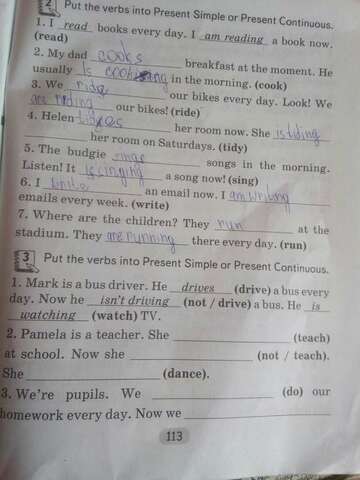 2 Put the verbs into Present Simple or Present Continuous.
1. I read books every day. I am reading a book now.
(read)
2. My dad cooks breakfast at the moment. He
usually is cooking in the morning. (cook)
3. We ridge our bikes every day. Look! We
are riding our bikes! (ride)
4. Helen tidies her room now. She is tiding
her room on Saturdays. (tidy)
5. The budgie sings songs in the morning.
Listen! It is singing a song now! (sing)
6. I write an email now. I am writing
emails every week. (write)
7. Where are the children? They run at the
stadium. They are running there every day. (run)
3 Put the verbs into Present Simple or Present Continuous.
1. Mark is a bus driver. He drives (drive) a bus every
day. Now he isn't driving (not / drive) a bus. He is
watching (watch) TV.
2. Pamela is a teacher. She (teach)
at school. Now she (not / teach).
She (dance).
3. We're pupils. We (do) our
homework every day. Now we
113